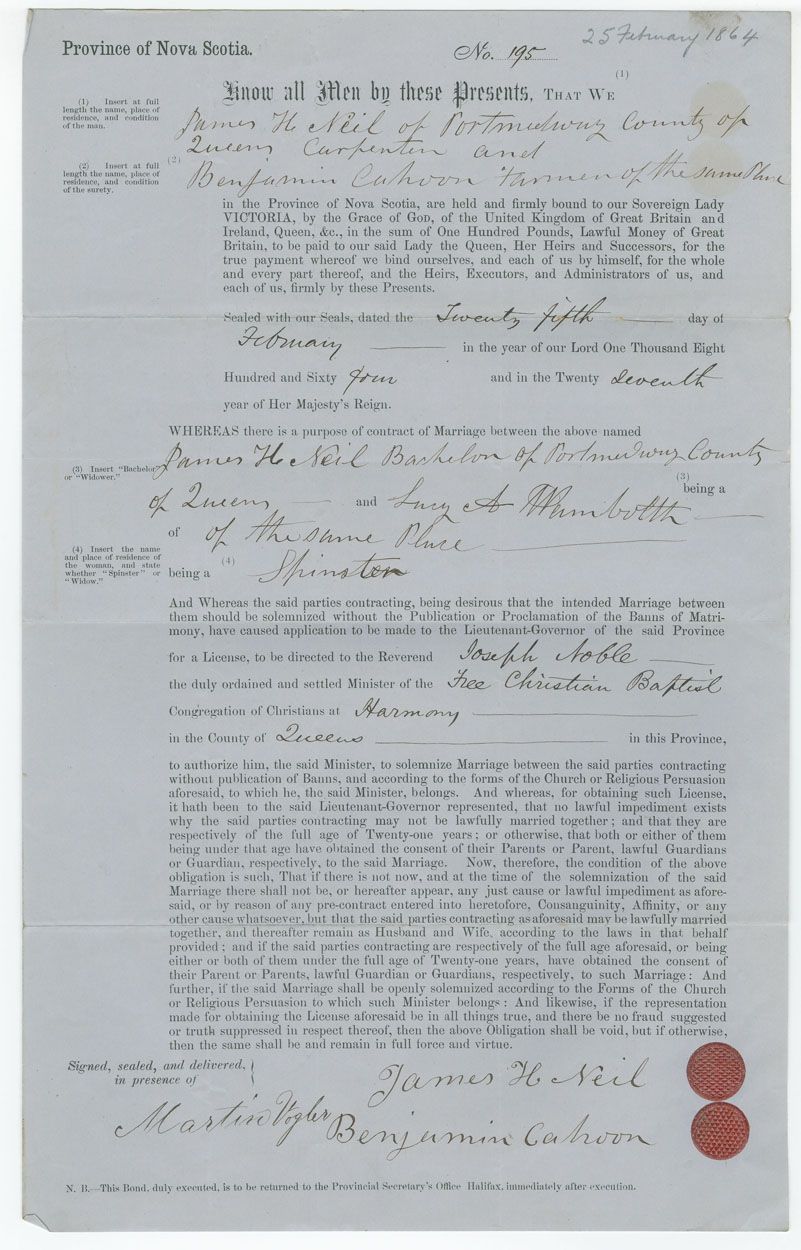 25 February 1864
Province of Nova Scotia.
No. 195
(1)
Know all Men by these Presents, THAT WE
(1) Insert at full
length the name, place of
residence, and condition
of the man.
James H Neil of Portmedway County of
Queens Carpenter and
(2) Insert at full
length the name, place of
residence, and condition
of the surety.
(2)
Benjamin Cahoon Farmer of the same Place
in the Province of Nova Scotia, are held and firmly bound to our Sovereign Lady
VICTORIA, by the Grace of GOD, of the United Kingdom of Great Britain and
Ireland, Queen, &c., in the sum of One Hundred Pounds, Lawful Money of Great
Britain, to be paid to our said Lady the Queen, Her Heirs and Successors, for the
true payment whereof we bind ourselves, and each of us by himself, for the whole
and every part thereof, and the Heirs, Executors, and Administrators of us, and
each of us, firmly by these Presents.
Sealed with our Seals, dated the Twenty fifth day of
February in the year of our Lord One Thousand Eight
Hundred and Sixty four and in the Twenty Seventh
year of Her Majesty's Reign.
WHEREAS there is a purpose of contract of Marriage between the above named
(3) Insert "Bachelor"
or "Widower."
James H Neil Bachelor of Portmedway County
(3)
of Queens and Lucy A Wambolth being a
of of the same Place
(4) Insert the name
and place of residence of
the woman, and state
whether "Spinster" or
"Widow."
being a (4) Spinster
And Whereas the said parties contracting, being desirous that the intended Marriage between
them should be solemnized without the Publication or Proclamation of the Banns of Matri-
mony, have caused application to be made to the Lieutenant-Governor of the said Province
for a License, to be directed to the Reverend Joseph Noble
the duly ordained and settled Minister of the Free Christian Baptist
Congregation of Christians at Harmony
in the County of Queens in this Province,
to authorize him, the said Minister, to solemnize Marriage between the said parties contracting
without publication of Banns, and according to the forms of the Church or Religious Persuasion
aforesaid, to which he, the said Minister, belongs. And whereas, for obtaining such License,
it hath been to the said Lieutenant-Governor represented, that no lawful impediment exists
why the said parties contracting may not be lawfully married together; and that they are
respectively of the full age of Twenty-one years; or otherwise, that both or either of them
being under that age have obtained the consent of their Parents or Parent, lawful Guardians
or Guardian, respectively, to the said Marriage. Now, therefore, the condition of the above
obligation is such, That if there is not now, and at the time of the solemnization of the said
Marriage there shall not be, or hereafter appear, any just cause or lawful impediment as afore-
said, or by reason of any pre-contract entered into heretofore, Consanguinity, Affinity, or any
other cause whatsoever, but that the said parties contracting as aforesaid may be lawfully married
together, and thereafter remain as Husband and Wife, according to the laws in that behalf
provided; and if the said parties contracting are respectively of the full age aforesaid, or being
either or both of them under the full age of Twenty-one years, have obtained the consent of
their Parent or Parents, lawful Guardian or Guardians, respectively, to such Marriage: And
further, if the said Marriage shall be openly solemnized according to the Forms of the Church
or Religious Persuasion to which such Minister belongs: And likewise, if the representation
made for obtaining the License aforesaid be in all things true, and there be no fraud suggested
or truth suppressed in respect thereof, then the above Obligation shall be void, but if otherwise,
then the same shall be and remain in full force and virtue.
Signed, sealed, and delivered,
in presence of
James H Neil
Martin Vogler
Benjamin Cahoon
N. B.—This Bond, duly executed, is to be returned to the Provincial Secretary's Office Halifax, immediately after execution.